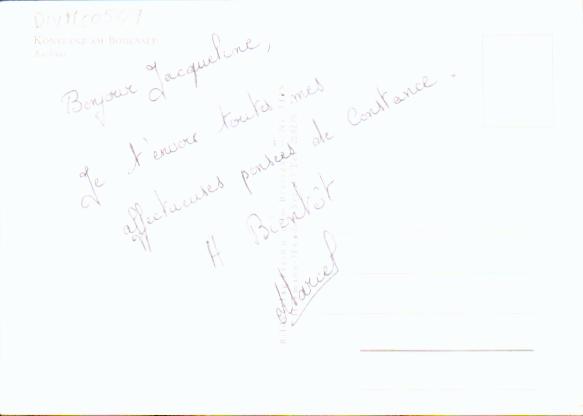 KONSTANZ AM BODENSEE
Bonjour Jacqueline,
Je t'envoie toutes mes
affectueuses pensées de Constance.
A Bientôt
Marcel